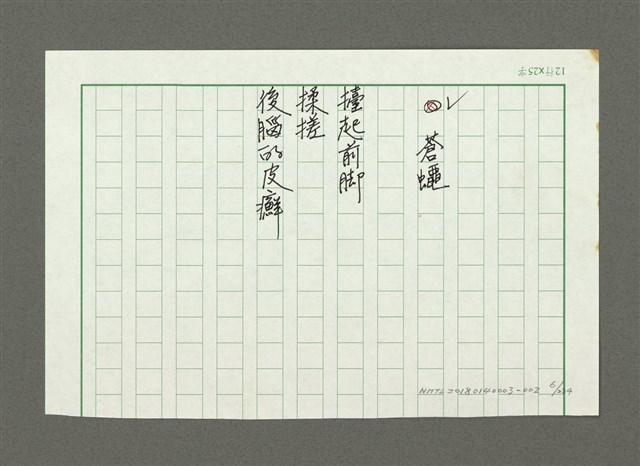 12行×25字
✓ 蒼蠅
擡起前脚
揉搓
後腦的皮癬
NMTL20180140003-002 6/224